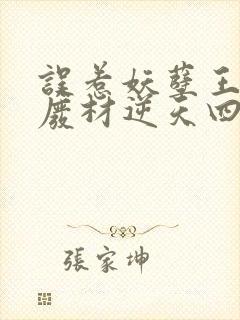 誤惹妖孽王
廢材逆天四
張家坤